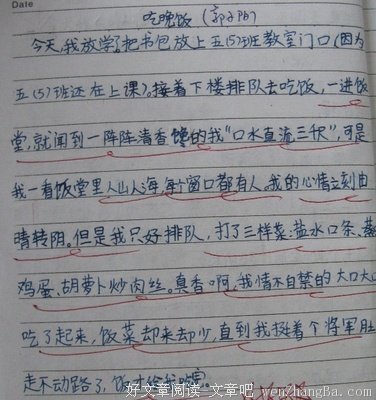 Date
吃晚饭（郭子阳）
今天,我放学了把书包放上五(5)班教室门口(因为
五(5)班还在上课)。接着下楼排队去吃饭,一进饭
堂,就闻到一阵阵清香馋的我“口水直流三尺”,可是
我一看饭堂里人山人海,每个窗口都有人。我的心情立刻由
晴转阴。但是我只好排队,打了三样菜:盐水口条、蒸
鸡蛋、胡萝卜炒肉丝。真香啊,我情不自禁的大口大口
吃了起来,饭菜却来却少,直到我挺着个将军肚
走不动路了,饭
好文章阅读-文章吧 wenzhangBa.com